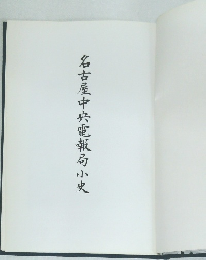 名古屋中央電報局小史